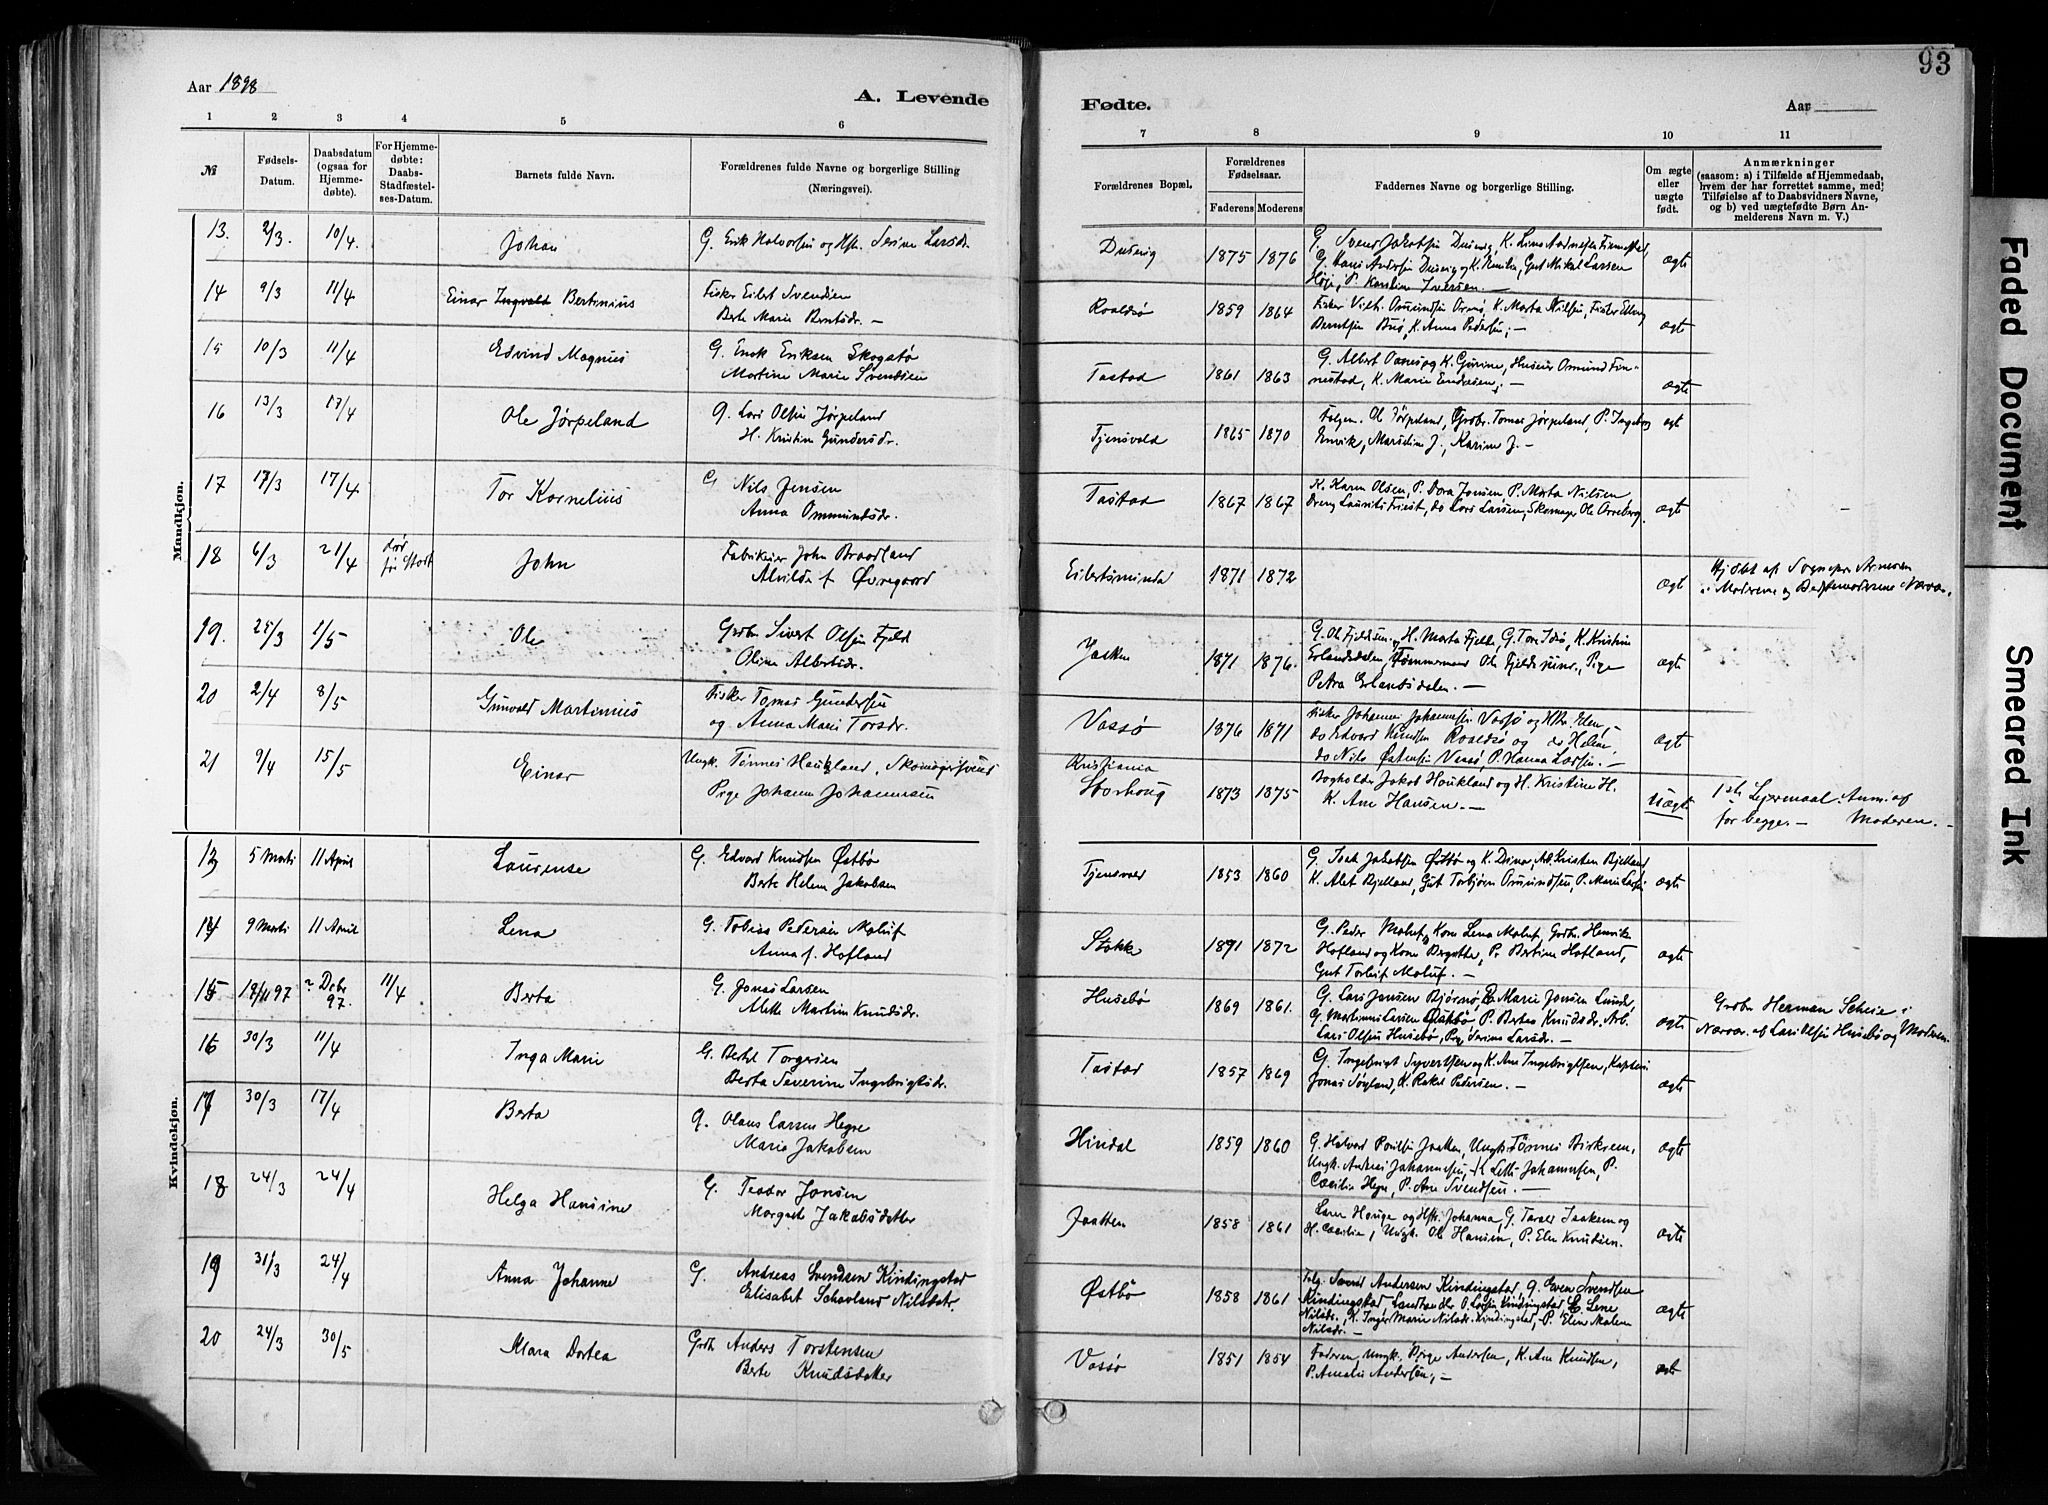 93
Aar 1898
A. Levende
Fødte.
Aar
1 2 3 4 5 6 7 8 9 10 11
№
Fødsels-
Datum.
Daabsdatum
(ogsaa for
Hjemme-
døbte).
For Hjemme-
døbte:
Daabs-
Stadfæstel-
ses-Datum.
Barnets fulde Navn.
Forældrenes fulde Navne og borgerlige Stilling
(Næringsvei).
Forældrenes Bopæl.
Forældrenes
Fødselsaar.
Faderens Moderens
Faddernes Navne og borgerlige Stilling.
Om ægte
eller
uægte
født.
Anmærkninger
(saasom: a) i Tilfælde af Hjemmedaab,
hvem der har forrettet samme, med
Tilføielse af to Daabsvidners Navne,
og b) ved uægtefødte Børn An-
melderens Navn m. V.)
Mandkjøn.
13. 2/3. 10/4. Johan
G. Erik Halvorsen og Hst. Serine Larsdr.
Dusevig 1875 1876
G. Svend Jakobsen Dusevig, K. Lina Finnestad,
G. Hans Andersen Dusevig og K. Emilie, Gut Mikal Larsen
P. Karoline Iversen. —
ægte
14 9/3 11/4 Einar Ingvald Bertinius
Fisker Eilert Svendsen
Berte Marie Berntsdr. —
Roaldsø 1859 1864
Fisker Vilh. Omundsen Ormø, K. Marta Nilsen, Fisker
Berntsen Busø, K. Anna Pedersen, —
ægte
15 10/3 11/4 Edvind Magnus
G. Enok Eriksen Skogstø
Martine Marie Svendsen
Tastad 1861 1863
G. Albert og K. Gurine, Husmr Omund Fin-
nestad, K. Marie Endresen, —
ægte
16 13/3 17/4 Ole Jørpeland
G. Lars Olsen Jørpeland
H. Kristine Gundersdr.
Tjensvold 1865 1870
Følgm. Ole Jørpeland, Grdbr. Tomas Jørpeland, P. Ingeborg
J., Karine J. —
ægt
17 17/3 17/4 Tor Kornelius
G Nils Jensen
Anna Ommundsdr.
Tastad 1867 1867
K. Karen Olsen, P. Dora Jonsen P. Marta Nilsen
Dreng Laurits Friest, do Lars Larsen, Skomager Ole Orreberg.
ægte
18 6/3 21/4 død
før Stadf.
John
Fabrikeier John Braadland
Alvilde f. Øvregaard
Eilertsminde 1871 1872
ægte
Hjdbt af Sognepr. Arnesen
i Moderens og Bedstemoderens Nærvær.
19. 25/3 1/5 Ole
Grdbr Sivert Olsen Fjeld
Oline Albertsdr.
1871 1876.
G. Ole Fjeldsen og H. Marta Fjelde, G. Tore Idsø, K. Kristine
Erlandsdalen, Tømmermand Ole Fjelde junr., Pige
Petra Erlandsdalen. —
ægte
20 2/4 8/5 Gunvald Martinius
Fisker Tomas Gundersen
og Anna Marie Torsdr.
Vassø 1876 1871
Fisker Johannes Johannesen Vassø og Hst. Elen, —
do Edvard Knudsen Roaldsø og do Helene,
do Nils Østensen Vassø, P. Hanna Larsen. —
ægte
21 9/4 15/5 Einar
Ungk. Tønnes Haukland, Skomagersvend
Pige Johanne Johannesen
Kristiania
Storhaug 1873 1875
Bogholder Jakob Haukland og H. Kristine H.
K. Ane Hansen. —
uægte
1ste Leiermaal Anm. af
for begge. — Moderen. —
Kvindekjøn.
13 5 Marts 11 April Laurense
G. Edvard Knudsen Østbø
Berte Helene Jakobsen
Tjensvold 1853 1860
G. Isak Jakobsen Østbø og K. Dina, Arb. Kristen Bjelland
K. Alet Bjelland, Gut Torbjørn Omundsen, P. Marie Larsen
ægte
14 9 Marts 11 April Lena
G. Tobias Pedersen Maluf
Anna f. Hofland
Stokke 1891 1872
G. Peder Maluf, Kone Lena Maluf, Grdbr Henrik
Hofland og Kone Bergitte, P. Bertine Hofland,
Gut Torleif Maluf. —
ægte
15 18/11 97 ? Decbr
97. 11/4 Berta
G. Jonas Larsen
Alette Martine Knudsdr.
Husebø 1869 1861.
G. Lars Jonsen Bjørnø, P. Marie Jonsen Lunde,
G. Martinus Larsen Østbø P. Bertea Knudsdr. Arb.
Lars Olsen Husebø, Pige Serine Larsdr. —
ægte
Grdbr Herman Scheie i
Nærvær. af Lars Olsen Husebø og Moderen.
16 30/3 11/4 Inga Marie
G. Bertel Torgersen
Berta Severine Ingebrigtsdr.
Tastad 1857 1869
G. Ingebrigt Syvertsen og K. Ane Ingebrigtsen, Kaptein
Jonas Søyland, K. Rakel Pedersen. —
ægte
17 30/3 17/4 Berta
G. Olaus Larsen Hegre
Marie Jakobsen
Hindal 1859 1860
G. Halvard Poulsen Jaatten, Ungk. Tønnes Birkrem,
Ungk. Andreas Johannesen, K. Johannesen, P.
Cecilie Hegre, P. Ane Svendsen. —
ægte
18 24/3 24/4 Helga Hansine
G. Teodor Jonsen
Margrete Jakobsdatter
Jaatten 1858 1861
Hauge og Hst. Johanna, G. Tarald og
H. Cecilie, Ungk. Ole Hansen, P. Elen Knudsen.
ægte
19 31/3 24/4 Anna Johanne
G. Andreas Svendsen Kindingstad
Elisabet Schavland Nilsdatr.
Østbø 1858 1861
Svend Andersen Kindingstad, G. Even Svendsen
Kindingstad, Landhandler O. Larsen Kindingstad, Lene
Nilsdr., K. Inger Marie Nilsdr. Kindingstad, P. Elen Malene
Nilsdr. —
ægte
20 24/3 30/5 Mara Dortea
Grdb Anders Torstensen
Berte Knudsdatter
Vassø 1851 1854
Faderen, Ungk. Andersen, K. Ane Knudsen,
P. Amalie Andersen, —
ægt
Faded Document
Smeared Ink